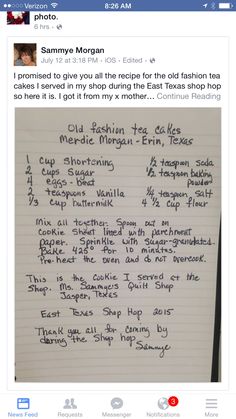 Verizon 8:26 AM 53%
photo.
6 hrs
Sammye Morgan
July 12 at 3:18 PM · iOS · Edited ·
I promised to give you all the recipe for the old fashion tea
cakes I served in my shop during the East Texas shop hop
so here it is. I got it from my x mother… Continue Reading
Old fashion tea cakes
Merdie Morgan - Erin, Texas
1 cup shortening
2 cups sugar
4 eggs - beat
2 teaspoons vanilla
1/3 cup buttermilk
1/2 teaspoon soda
1/2 teaspoon baking
powder
1/4 teaspoon salt
4 1/2 cup flour
Mix all together. Spoon out on
cookie sheet lined with parchment
paper. Sprinkle with sugar-granulated.
Bake 425° for 10 minutes.
Pre-heat the oven and do not overcook.
This is the cookie I served at the
Shop. Ms. Sammye's Quilt Shop
Jasper, Texas
East Texas Shop Hop 2015
Thank you all for coming by
during the Shop hop
Sammye
News Feed
Requests
Messenger
3
Notifications
More